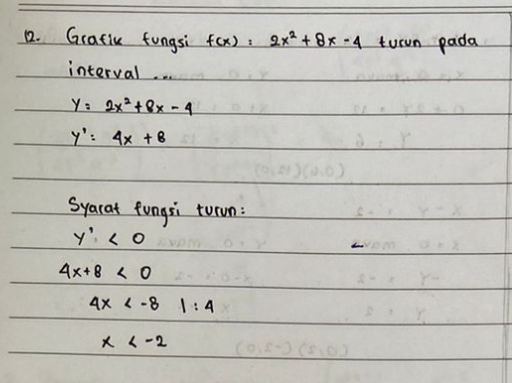 12. Grafik fungsi f(x) : 2x² + 8x - 4 turun pada
interval ...
Y = 2x² + 8x - 4
Y' = 4x + 8
Syarat fungsi turun :
Y' < 0
4x + 8 < 0
4x < -8 | : 4
x < -2